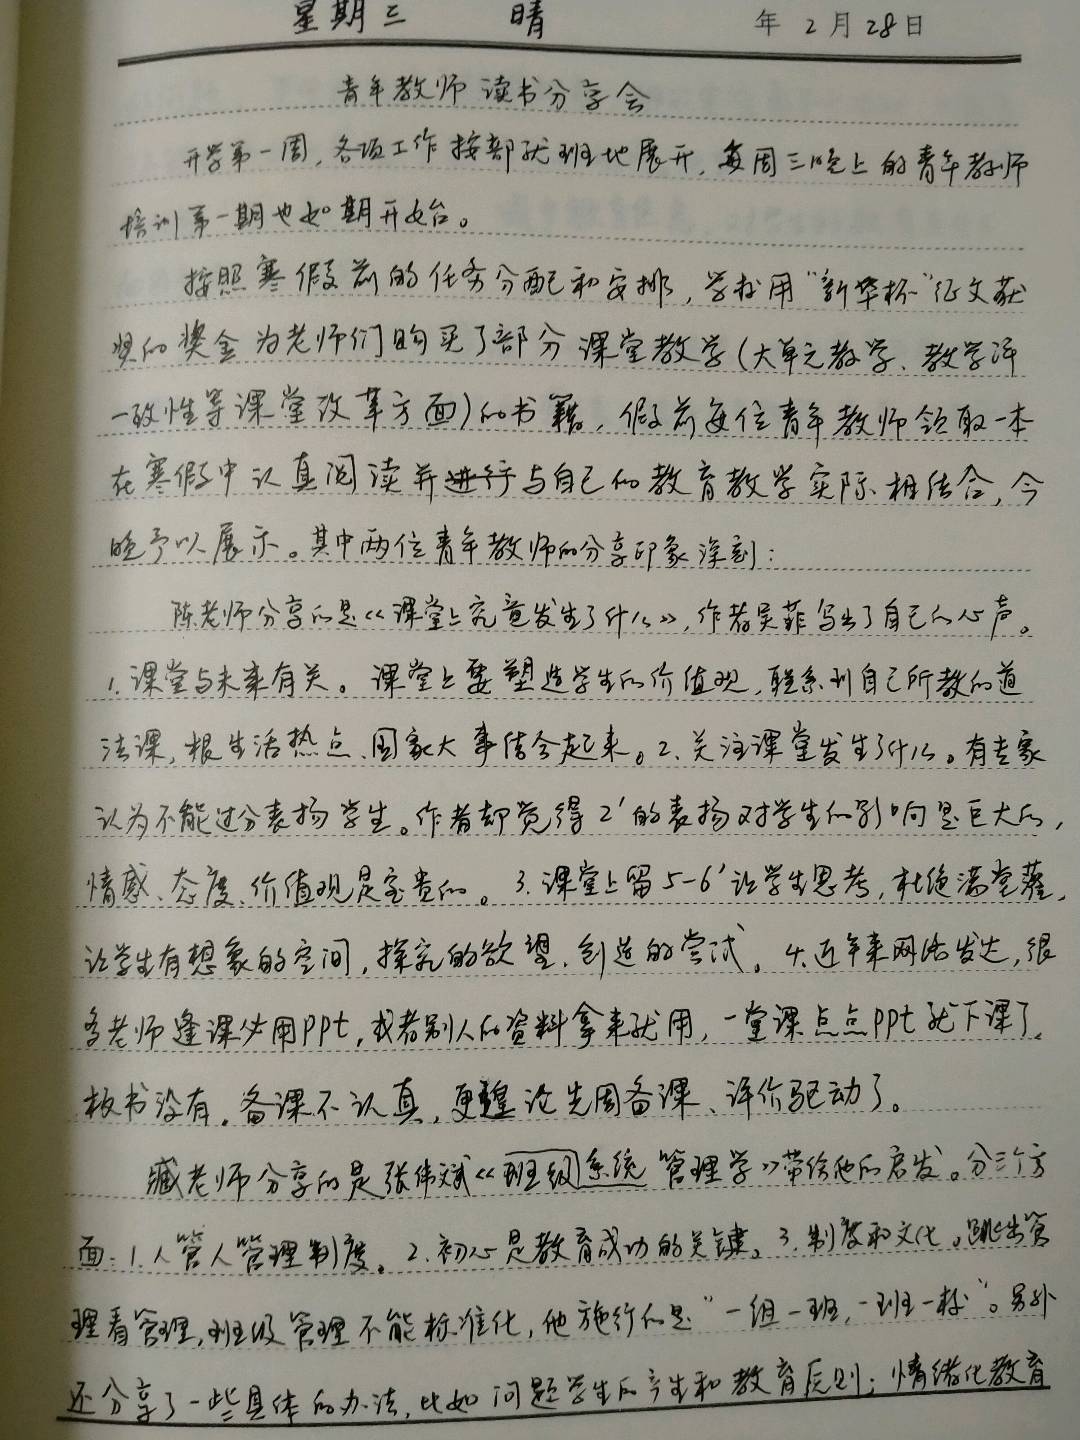 星期三 晴 年 2 月 28 日
青年教师读书分享会
开学第一周，各项工作按部就班地展开，每周三晚上的青年教师
培训第一期也如期开始。
按照寒假前的任务分配和安排，学校用“新华杯”征文获
奖的奖金为老师们购买了部分课堂教学（大单元教学、教学评
一致性等课堂改革方面）的书籍，假前每位青年教师领取一本
在寒假中认真阅读并进行与自己的教育教学实际相结合，今
晚予以展示。其中两位青年教师的分享印象深刻：
陈老师分享的是《课堂上究竟发生了什么》，作者吴菲写出了自己的心声。
1.课堂与未来有关。课堂上要塑造学生的价值观，联系到自己所教的道
法课，根生活热点、国家大事结合起来。2.关注课堂发生了什么。有专家
认为不能过分表扬学生。作者却觉得2′的表扬对学生的影响是巨大的，
情感、态度、价值观是宝贵的。3.课堂上留5-6′让学生思考，杜绝满堂灌，
让学生有想象的空间，探究的欲望，创造的尝试。4.近年来网络发达，很
多老师逢课必用ppt，或者别人的资料拿来就用，一堂课点点ppt就下课了，
板书没有，备课不认真，更遑论先周备课、评价驱动了。
臧老师分享的是张伟斌《班级系统管理学》带给他的启发。分三个方
面：1.人管人管理制度。2.初心是教育成功的关键。3.制度和文化。跳出管
理看管理，班级管理不能标准化，他施行的是“一组一班，一班一校”。另外
还分享了一些具体的办法，比如问题学生的产生和教育原则；情绪化教育